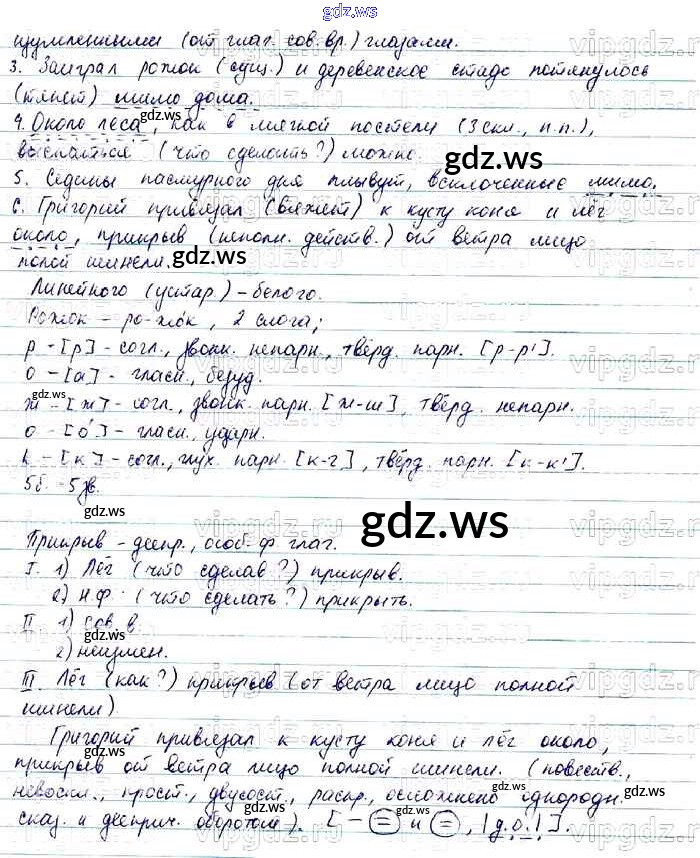 gdz.ws
изумленными (от глаг. сов. вр.) глазами.
3. Заиграл рожок (сущ.) и деревенское стадо потянулось
(тянет) мимо дома.
4. Около леса, как в мягкой постели (3 скл., п.п.),
выспаться (что сделать?) можно.
5. Седины пасмурного дня плывут, всклоченные мимо.
6. Григорий привязал (вяжет) к кусту коня и лёг
около, прикрыв (неполн. действ.) от ветра лицо
полой шинели.
Линейного (устар.) - белого.
Рожок - ро-жок, 2 слога;
р - [р] - согл., звонк. непарн., твёрд. парн. [р-р'].
о - [а] - гласн., безуд.
ж - [ж] - согл., звонк. парн. [ж-ш], твёрд. непарн.
о - [о́] - гласн., ударн.
к - [к] - согл., глух. парн. [к-г], твёрд. парн. [к-к'].
5б. - 5 зв.
gdz.ws
Прикрыв - деепр., особ. ф. глаг.
I. 1) Лёг (что сделав?) прикрыв.
2) Н.Ф. (что сделать?) прикрыть.
II 1) сов. в.
2) неизмен.
III. Лёг (как?) прикрыв (от ветра лицо полной
шинели)
Григорий привязал к кусту коня и лёг около,
прикрыв от ветра лицо полной шинели. (повеств.,
невоскл., прост., двусост., распр., осложнено однородн.
сказ. и дееприч. оборотом). [- = и =, |д.о.|].